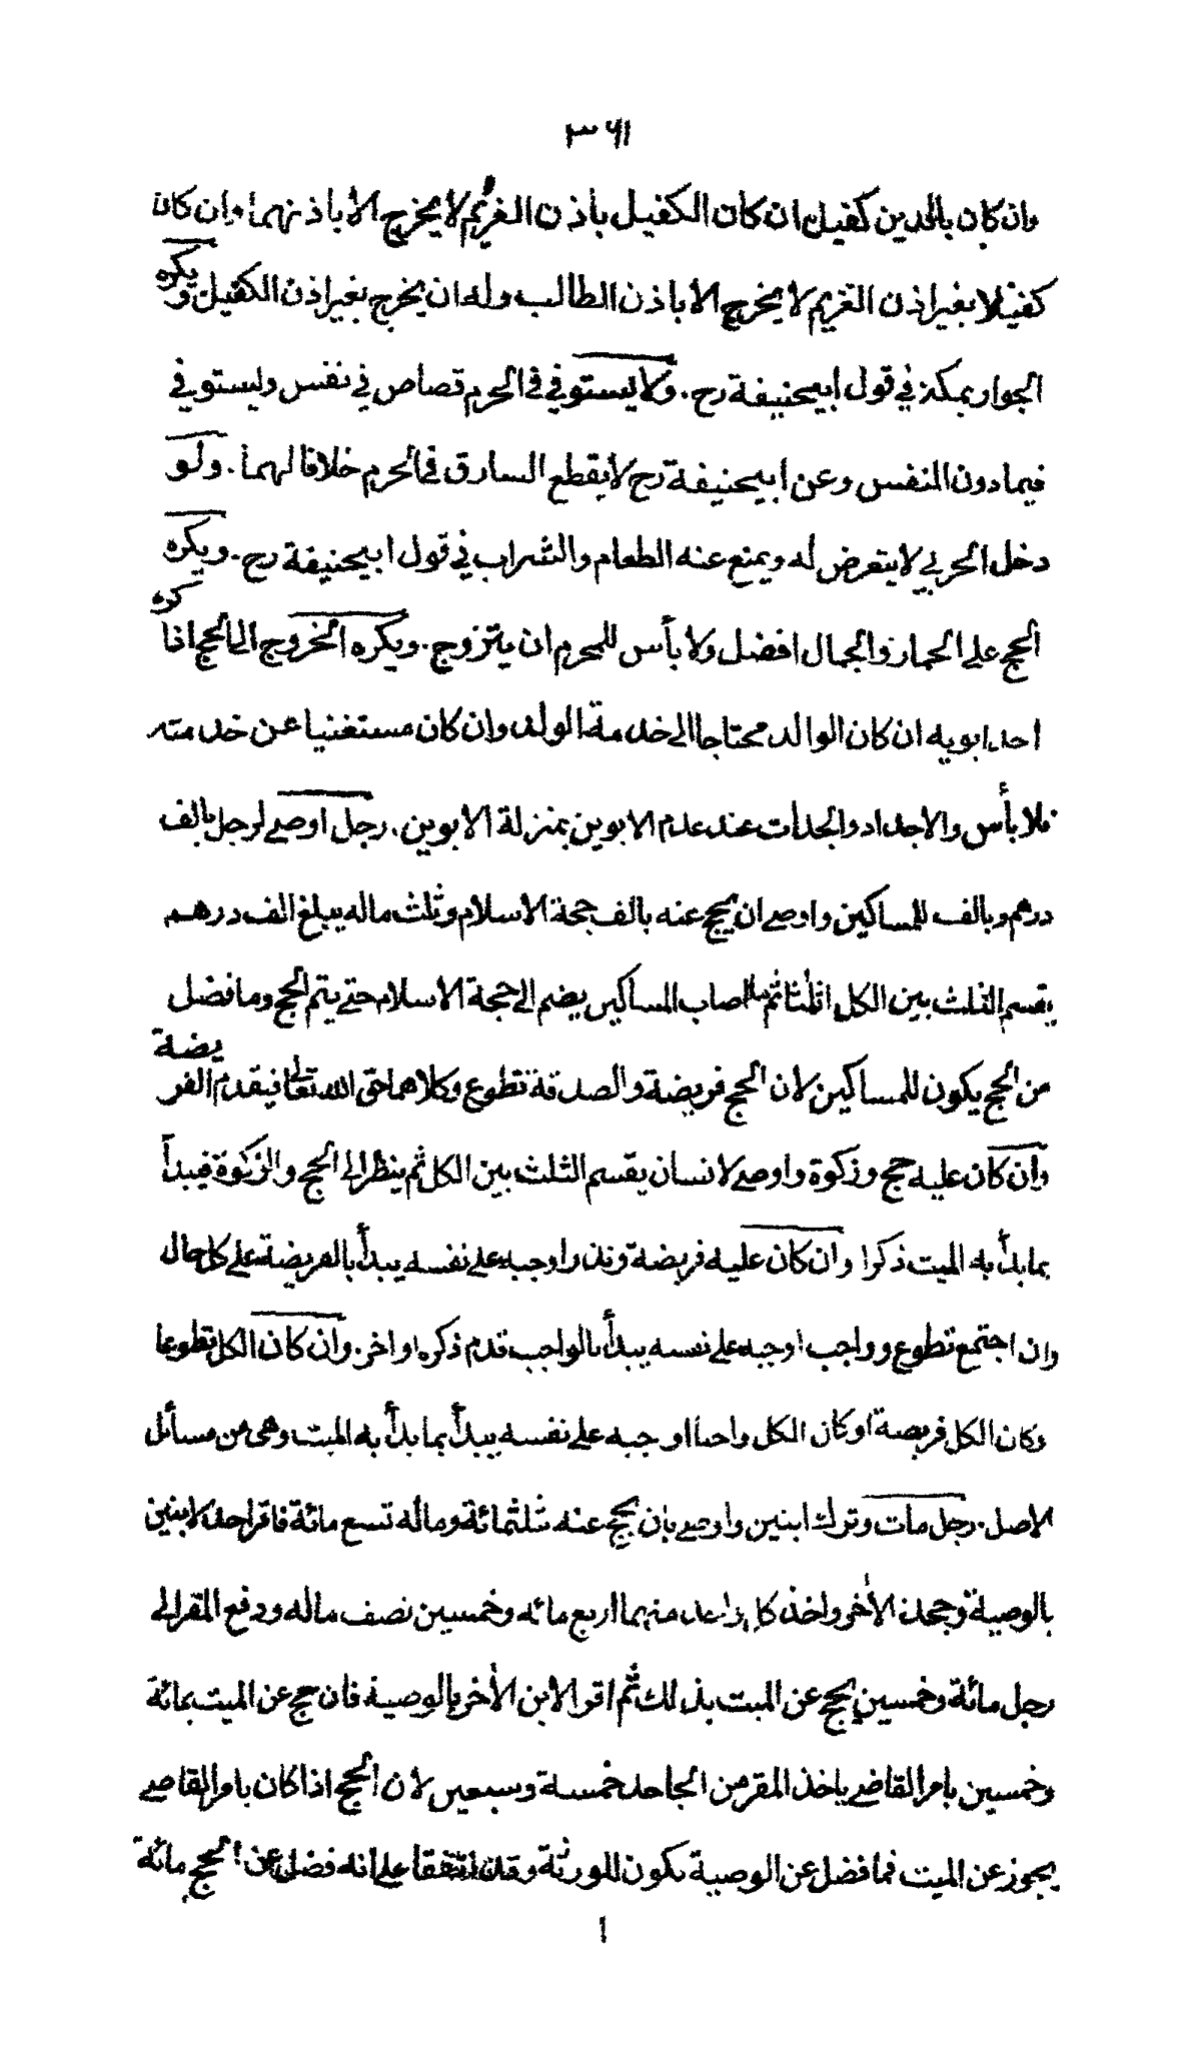 ٣٦١
وان كان بالدين كفيل ان كان الكفيل باذن الغريم لا يخرج الا باذنهما وان كان
كفيلا بغير اذن الغريم لا يخرج الا باذن الطالب وله ان يخرج بغير اذن الكفيل ويكره
الجوار بمكة في قول ابيحنيفة رح. ولا يستوفي في الحرم قصاص في نفس وليستوفي
فيما دون النفس وعن ابيحنيفة رح لا يقطع السارق في الحرم خلافا لهما. ولو
دخل الحربي لا يتعرض له ويمنع عنه الطعام والشراب في قول ابيحنيفة رح. ويكره
الحج على الحمار والجمال افضل ولا بأس للمحرم ان يتزوج. ويكره الخروج الى الحج اذا كره
احد ابويه ان كان الوالد محتاجا الى خدمة الولد وان كان مستغنيا عن خدمته
فلا بأس والاجداد والجدات عند عدم الابوين بمنزلة الابوين. رجل اوصى لرجل بالف
درهم وبالف للمساكين واوصى ان يحج عنه بالف حجة الاسلام وثلث ماله يبلغ الف درهم
يقسم الثلث بين الكل اثلاثا ثم ما اصاب المساكين يضم الى حجة الاسلام حتى يتم الحج وما فضل
من الحج يكون للمساكين لان الحج فريضة والصدقة تطوع وكلاهما حق الله تعالى فيقدم الفريضة
وان كان عليه حج وزكوة واوصى لانسان يقسم الثلث بين الكل ثم ينظر الى الحج والزكوة فيبدأ
بما بدأ به الميت ذكرا وان كان عليه فريضة ونذر اوجبه على نفسه يبدأ بالفريضة على كل حال
وان اجتمع تطوع وواجب اوجبه على نفسه يبدأ بالواجب قدم ذكره او اخر. وان كان الكل تطوعا
وكان الكل فريضة او كان الكل واجبا اوجبه على نفسه يبدأ بما بدأ به الميت وهى من مسائل
الاصل. رجل مات وترك ابنين واوصى بان يحج عنه بثلثمائة وماله تسع مائة فاقر احد الابنين
بالوصية وجحد الاخر واخذ كل واحد منهما اربع مائه وخمسين نصف ماله ودفع المقر الى
رجل مائة وخمسين يحج عن الميت بذلك ثم اقر الابن الاخر بالوصية فان حج عن الميت بمائة
وخمسين بامر القاضى ياخذ المقر من الجاحد خمسة وسبعين لان الحج اذا كان بامر القاضى
يجوز عن الميت فما فضل عن الوصية يكون للورثة وقد اتفقا على انه فضل عن الحج مائة
ا